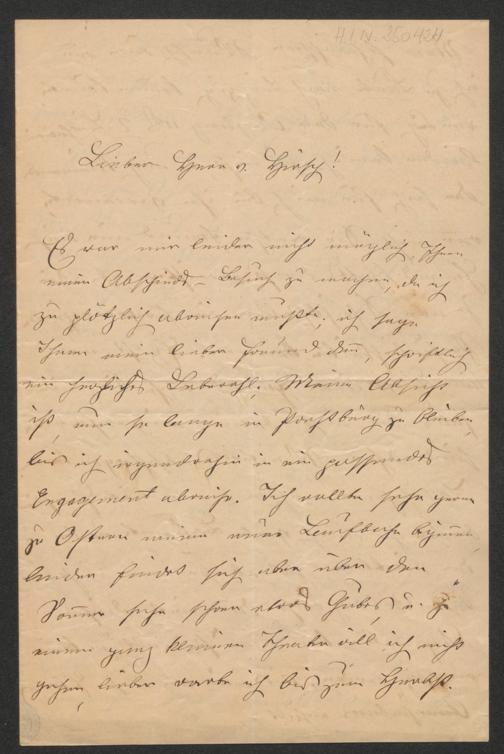 H.I.N. 260424
Lieber Herr v. Hirsch!
Es war mir leider nicht möglich, Ihnen
einen Abschieds-Besuch zu machen, da ich
zu plötzlich abreisen mußte; ich sage
Ihnen mein lieber Freund denn, schriftlich
ein herzliches Lebewohl. Meine Absicht
ist, nur so lange in Preßburg zu bleiben,
bis ich irgendwohin in ein passendes
Engagement abreise. Ich wollte sehr gerne
zu Ostern meine neue Laufbahn beginnen,
leider findet sich aber über den
Sommer sehr schwer etwas Gutes, u. zu
einem ganz kleinen Theater will ich nicht
gehen, lieber warte ich bis zum Herbst.